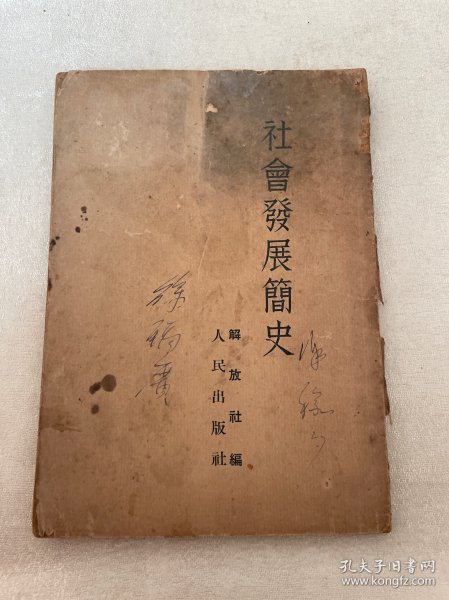 社會發展簡史
解放社編
人民出版社
孔夫子旧书网
www.kongfz.com